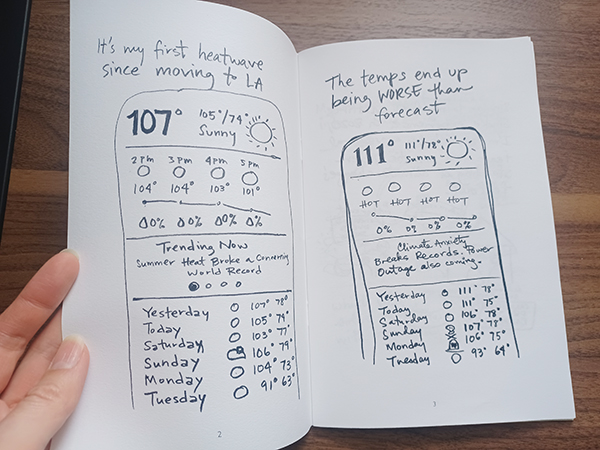 It's my first heatwave
since moving to LA
107° 105°/74°
Sunny
2pm 3pm 4pm 5pm
104° 104° 103° 101°
0% 0% 0% 0%
Trending Now
Summer Heat Broke a Concerning
World Record
Yesterday 107° 78°
Today 105° 74°
Saturday 103° 77°
Sunday 106° 79°
Monday 104° 73°
Tuesday 91° 63°
2
The temps end up
being WORSE than
forecast
111° 111°/78°
Sunny
HOT HOT HOT HOT
0% 0% 0% 0%
Climate Anxiety
Breaks Records. Power
Outage also coming.
Yesterday 111° 78°
Today 111° 75°
Saturday 106° 78°
Sunday 107° 77°
Monday 106° 75°
Tuesday 93° 64°
3